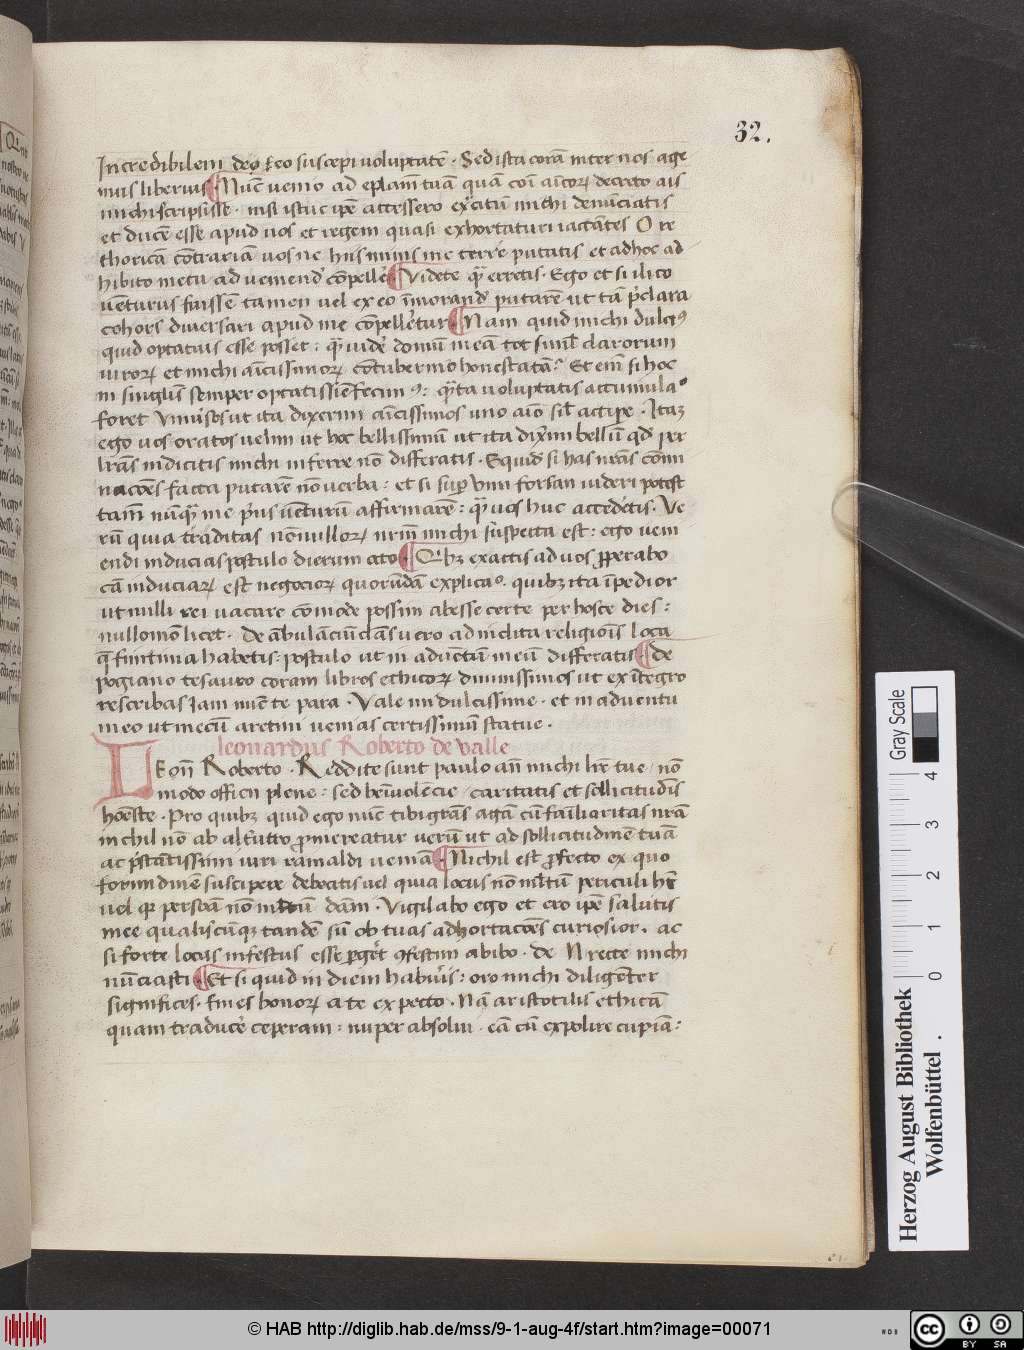 32.
Incredibilem deo suscepi voluptatē. Sed ista corā inter nos age
mus liberius Nūc venio ad eplam tuā quā coi decreto ais
michi scripsisse. nisi istuc ipē accessero excitū michi denūciatis
et ducē esse apud vos et regem quasi exhortaturi iactātes O re
thoricā cōtrariā vos ne hiis minis me terre putatis et ad hoc ad
hibito metu ad veniend cōpelle Videte erretis. Ego et si ilico
vēturus fuissē tamen vel ex eo īmorand putarē ut tā pclara
cohors diversari apud me cōpelletur Nam quid michi dulcius
quid optatius esse posset: vide domū meā tot simul clarorum
virorum et michi amicissimorum cōtubernio honestatā. Et enī si hoc
in singulis semper optatissīe fecimus: voluptatis accumula
foret Vniusos ut ita dixerim aīcissimos uno aīo sil accipe. Itaque
ego vos oratos velim ut hoc bellissimū ut ita dixim bellū qd per
lrās indicitis michi inferre nō differatis. Equid si has nrās cōmi
nacōes facta putarē nō verba: et si sup vim forsan videri potest
tam nūq me prius vēturū affirmarē: vos huc accedetis. Ve
rū quia traditas nōnullorum nrm michi suspecta est: ego veni
endi inducias postulo dierum octo Qbz exactis ad vos pperabo
cā induciarum est negociorum quorūdā explicaō. quibz ita īpedior
ut nulli rei vacare cōmode possim abesse certe per hosce dies:
nullomō licet. De ābulāciūclās vero ad inclita religiois loca
q finitima habetis: postulo ut in advētū meū differatis de
pogiano tesauro coram libros ethicorum divinissimos ut ex ītegro
rescribas Iam nūc te para. Vale mi dulcissime. et in adventu
meo ut mecū aretini venias certissimū statue.
leonardus Roberto de valle
LEon Roberto. Reddite sunt paulo an michi lre tue nō
modo officii plene: sed beīvolēcie caritatis et sollicitudis
hoēste. Pro quibz quid ego nūc tibi grās agā cū familiaritas nrā
inchil nō ab altutro pmereatur verū ut ad sollicitudinē tuā
ac pstātissimi iuri ramaldi veniā Nichil est pfecto ex quo
formidinē suscipere debeatis vel quia locus nō mltū periculi hr
vel qr persoā nō mltū dām. Vigilabo ego et ero ipē salutis
mee qualiscūqz tandē sū ob tuas adhortacōes curiosior. ac
si forte locus infestus esse pget cōfestim abibo. de N recte michi
nūciasti Et si quid in diem habuis: oro michi diligēter
significes. fines bonorum a te expecto. Nā aristotilis ethicā
quam traduce ceperam: nuper absolui. eā cū expolire cupiā:
Gray Scale
0 1 2 3 4
Herzog August Bibliothek
Wolfenbüttel .
© HAB http://diglib.hab.de/mss/9-1-aug-4f/start.htm?image=00071
WDB
cc
BY SA